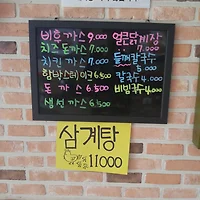 비후까스 9.000
치즈돈까스 7.000
치킨까스 7.000
함박스테이크 6.500
돈까스 6.500
생선까스 6.500
얼큰닭개장
7.000
들깨칼국수
5.000
칼국수 4.000
비빔국수 4.000
삼계탕
11000